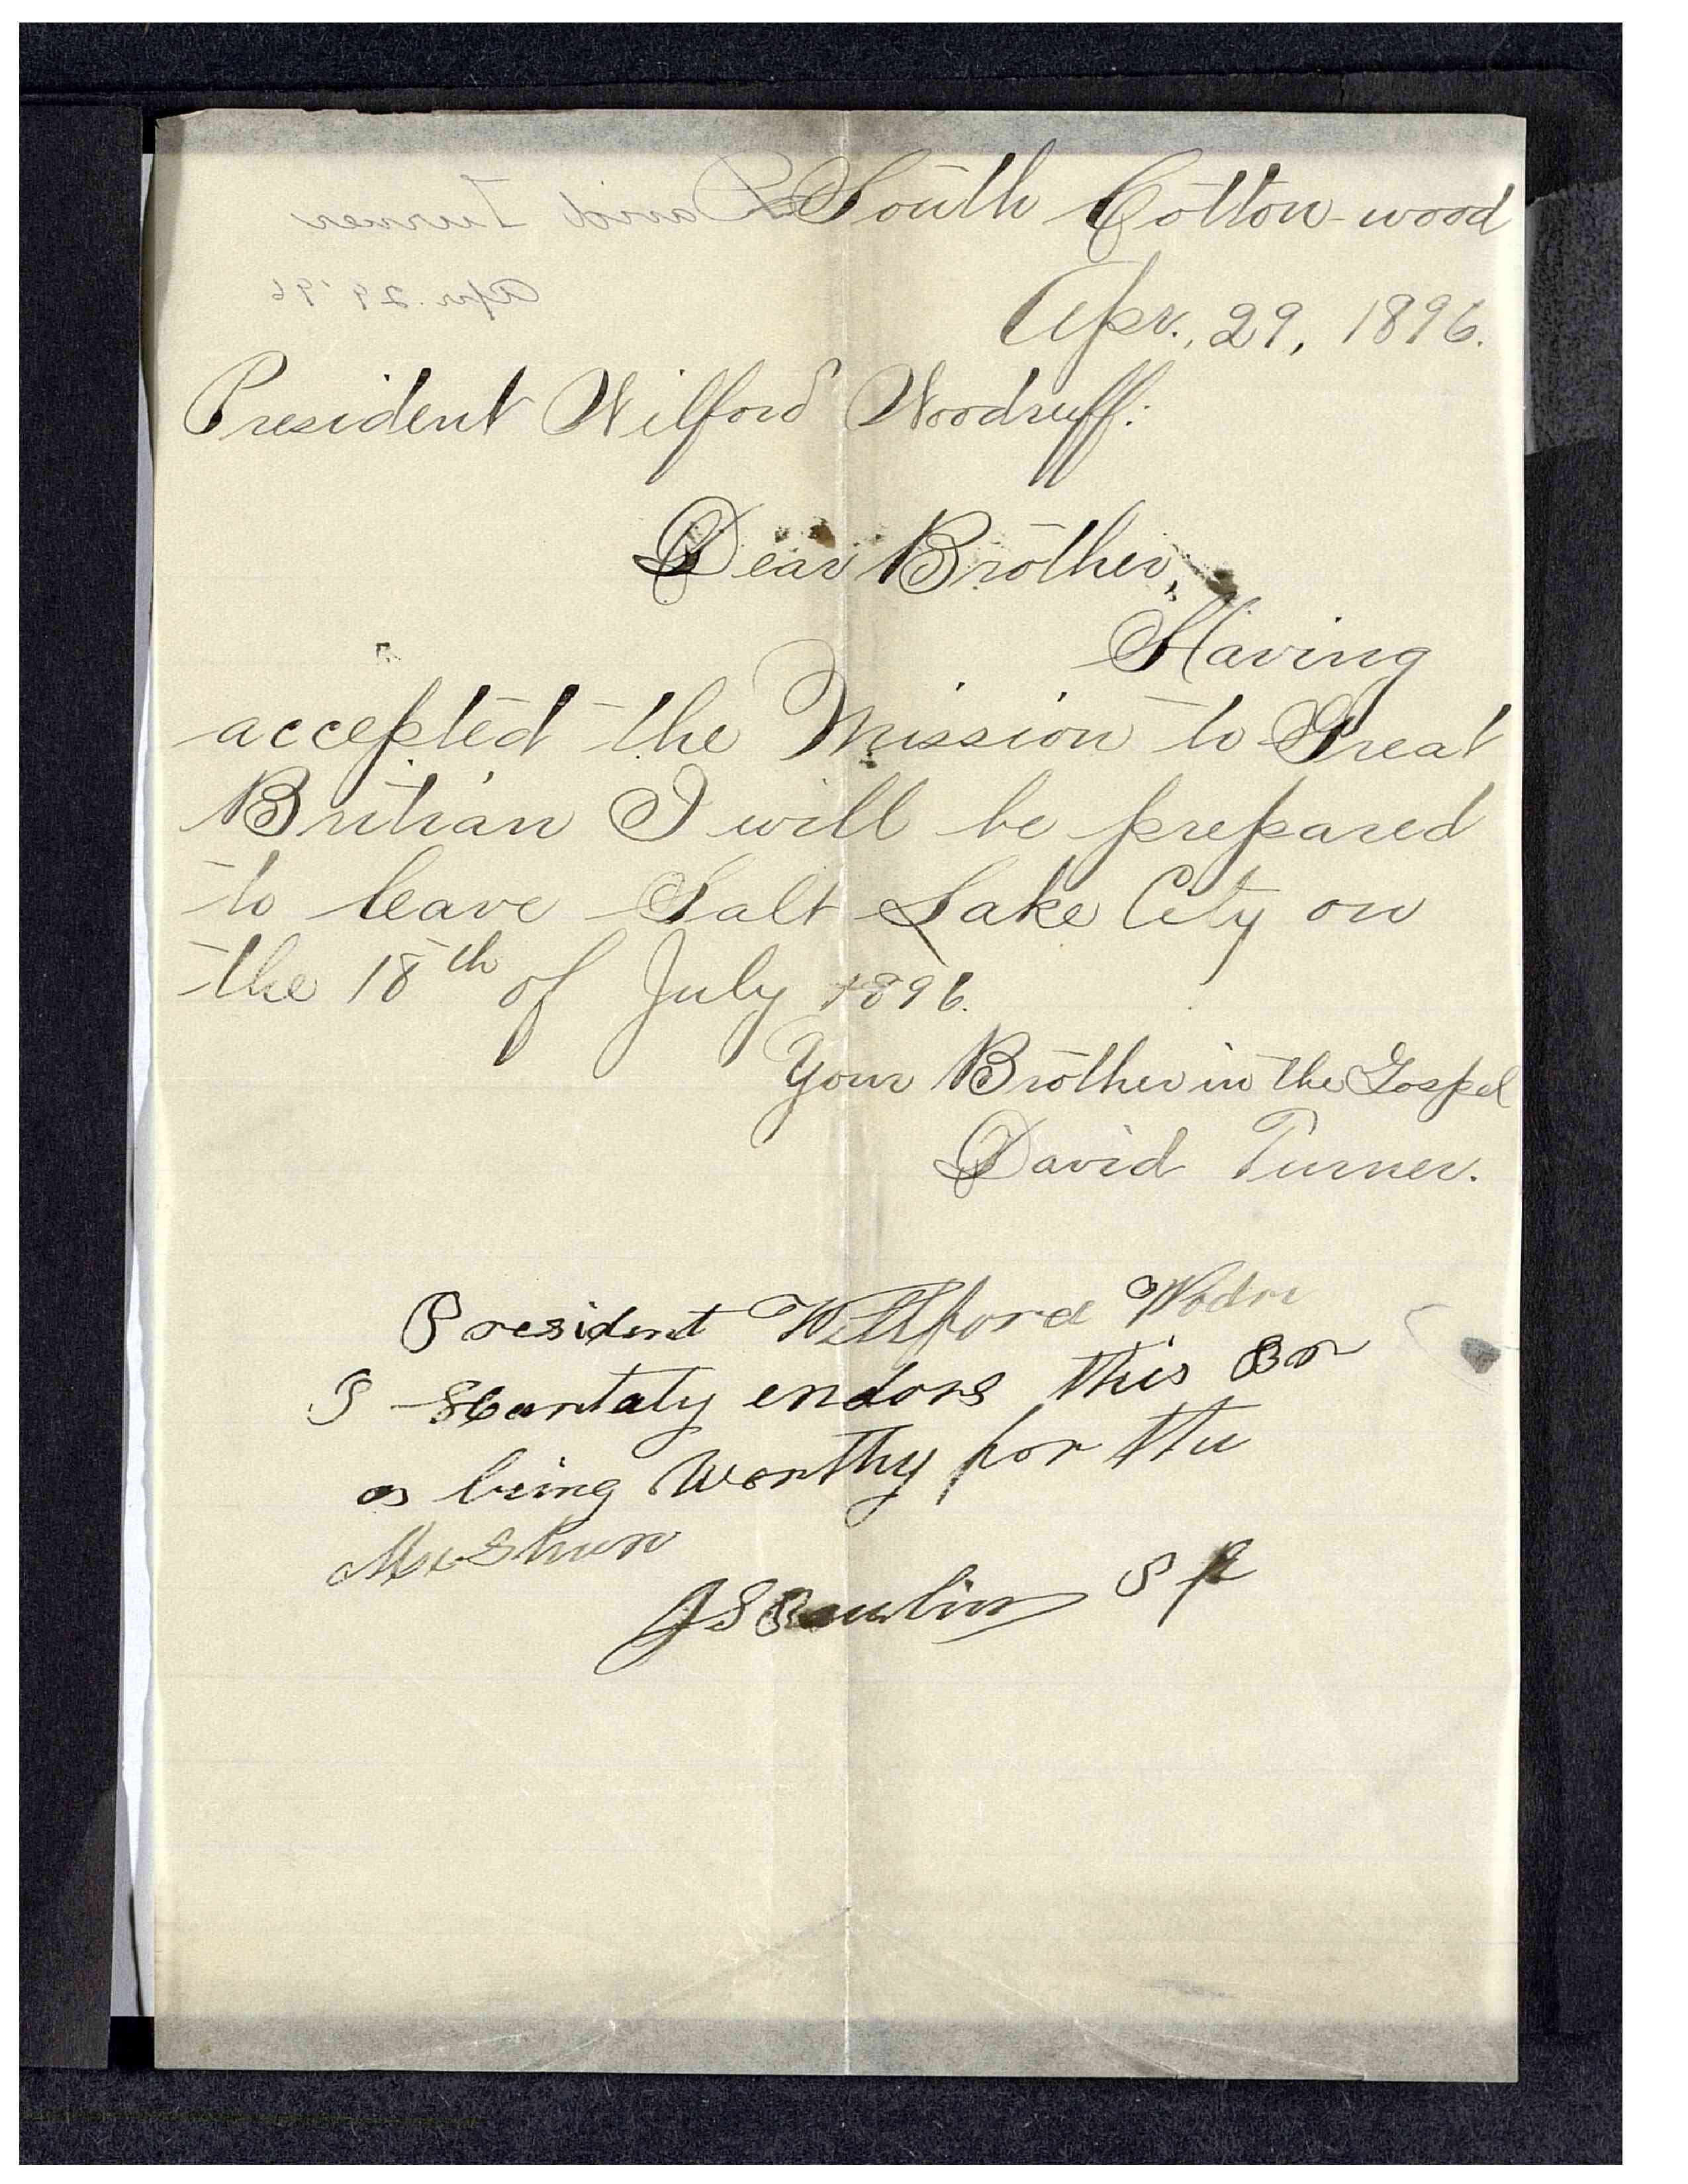 South Cotton-wood
Apr., 29, 1896.
President Wilford Woodruff:
Dear Brother,
Having
accepted the Mission to Great
Britian I will be prepared
to leave Salt Lake City on
the 18th of July 1896.
Your Brother in the Gospel
David Turner.
President Willford Wodru
I Hartaly endors this Br
as being Worthy for the
J S Rawlins
David Turner
Apr. 29 '96